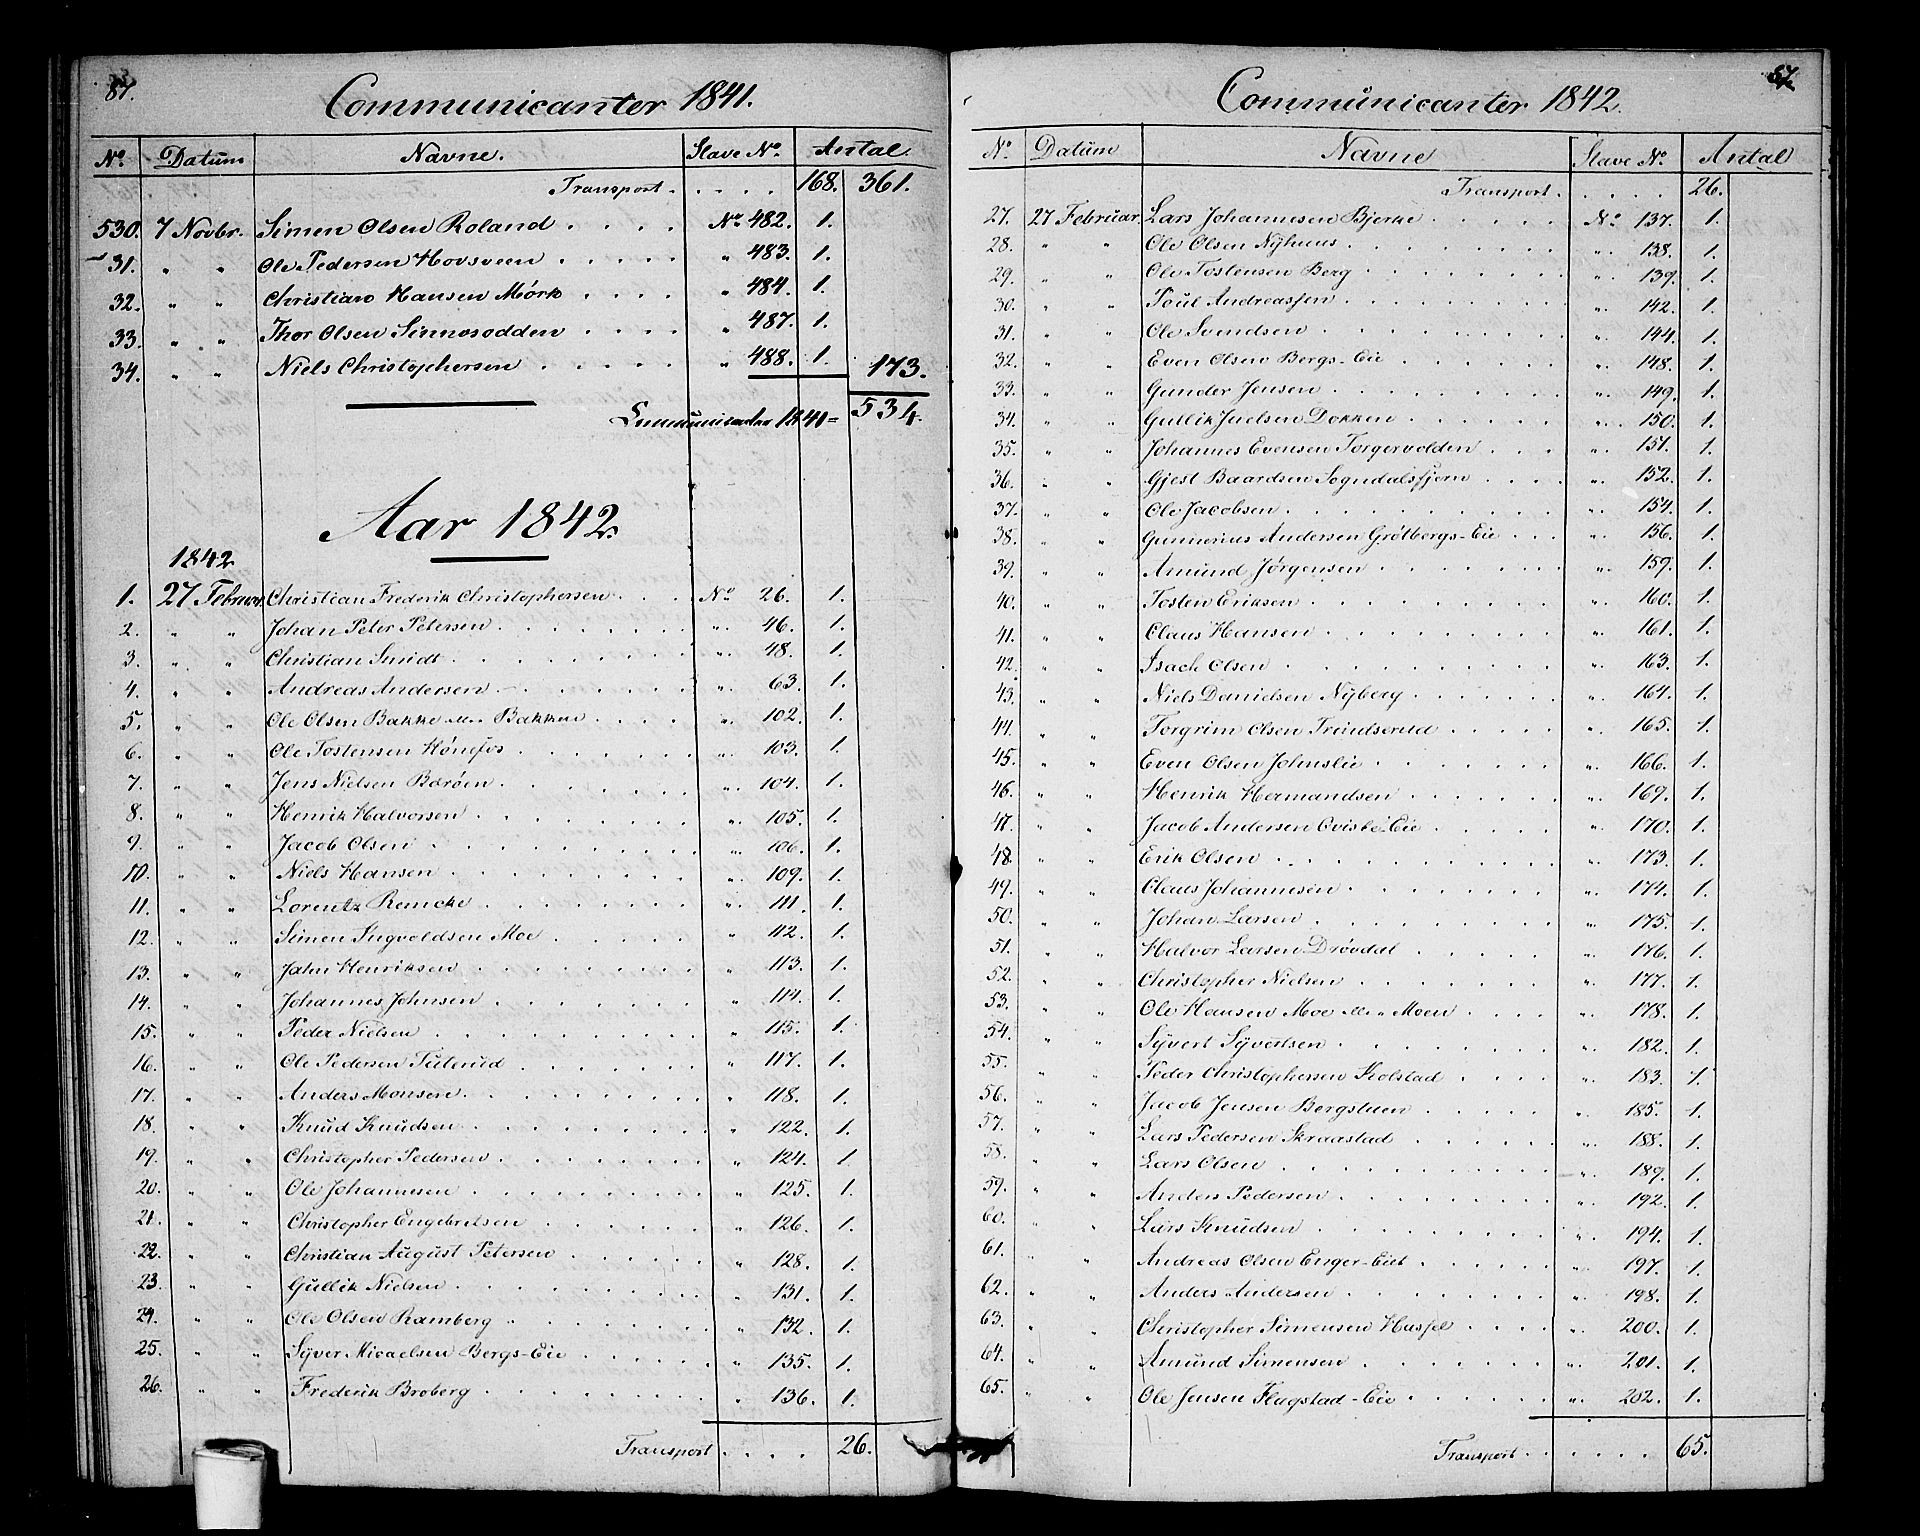 Communicanter 1841.
No. Datum Navne. Slave No. Antal.
Transport . . . . 168. 361.
530. 7 Novbr. Simen Olsen Roland . . . . No 482. 1.
31. " " Ole Pedersen Hovsveen . . . . . " 483. 1.
32. " " Christian Hansen Mørk . . . . " 484. 1.
33. " " Thor Olsen Sinnesodden . . . . " 487. 1.
34. " " Niels Christophersen . . . . . " 488. 1. 173.
Communicanter 1841 = 534.
Aar 1842.
1842
1. 27 Februar. Christian Frederik Christophersen . . . No 26. 1.
2. " " Johan Peter Petersen . . . . . . . " 46. 1.
3. " " Christian Smidt . . . . . . . " 48. 1.
4. " " Andreas Andersen . . . . . . " 63. 1.
5. " " Ole Olsen Bakke eller Bakken . . . . " 102. 1.
6. " " Ole Tostensen Hønefos . . . . . . " 103. 1.
7. " " Jens Nielsen Barøen . . . . . . . " 104. 1.
8. " " Henrik Halvorsen . . . . . . . " 105. 1.
9. " " Jacob Olsen . . . . . . . . . " 106. 1.
10. " " Niels Hansen . . . . . . . . " 109. 1.
11. " " Lorentz Rencke . . . . . . . " 111. 1.
12. " " Simen Ingvoldsen Moe . . . . . " 112. 1.
13. " " Jahn Henriksen . . . . . . . . " 113. 1.
14. " " Johannes Johnsen . . . . . . . " 114. 1.
15. " " Peder Nielsen . . . . . . . . " 115. 1.
16. " " Ole Pedersen . . . . . . " 117. 1.
17. " " Anders Monsen . . . . . . . . " 118. 1.
18. " " Knud Knudsen . . . . . . . . " 122. 1.
19. " " Christopher Pedersen . . . . . . " 124. 1
20. " " Ole Johannesen . . . . . . . . " 125. 1.
21. " " Christopher Engebretsen . . . . . " 126. 1.
22. " " Christian August Petersen . . . . " 128. 1.
23. " " Gullik Nielsen . . . . . . . . " 131. 1.
24. " " Ole Olsen Ramberg . . . . . . " 132. 1.
25. " " Syver Micaelsen Bergs-Eie . . . . " 135. 1.
26. " " Frederik Broberg . . . . . . . " 136. 1.
Transport . . . . 26.
57.
Communicanter 1842.
No. Datum Navne Slave No. Antal
Transport . . . . . 26.
27. 27 Februar. Lars Johannesen Bjerke . . . . . No 137. 1.
28. " " Ole Olsen Nyhuus . . . . . . . . " 138. 1.
29. " " Ole Tostensen Berg . . . . . . . " 139. 1.
30. " " Poul Andreassen . . . . . . . . " 142. 1.
31. " " Ole Svendsen . . . . . . . . . " 144. 1.
32. " " Even Olsen Bergs-Eie . . . . . . " 148. 1.
33. " " Gunder Jensen . . . . . . . . " 149. 1.
34. " " Gullik Juelsen Dokken . . . . . . " 150. 1.
35. " " Johannes Evensen Torgervolden . . . " 151. 1.
36. " " Gjest Baardsen Sogndalsfjern . . . . " 152. 1.
37. " " Ole Jacobsen . . . . . . . . . " 154. 1.
38. " " Gunnerius Andersen Grøtbergs-Eie . . . " 156. 1.
39. " " Amund Jørgensen . . . . . . . " 159. 1.
40. " " Tosten Eriksen . . . . . . . . " 160. 1.
41. " " Claus Hansen . . . . . . . . " 161. 1.
42. " " Isach Olsen . . . . . . . . . " 163. 1.
43. " " Niels Danielsen Nyberg . . . . . . " 164. 1.
44. " " Torgrim Olsen Trindserud . . . . . " 165. 1.
45. " " Even Olsen Johnslie . . . . . . . " 166. 1.
46. " " Henrik Hermandsen . . . . . . " 169. 1.
47. " " Jacob Andersen Qvisbe Eie . . . . . " 170. 1.
48. " " Erik Olsen . . . . . . . . . . " 173. 1.
49. " " Claus Johannesen . . . . . . . " 174. 1.
50. " " Johan Larsen . . . . . . . . . " 175. 1.
51. " " Halvor Larsen Drøvdal . . . . . . " 176. 1.
52. " " Christopher Nielsen . . . . . . . " 177. 1.
53. " " Ole Hansen Moe eller Moen . . . . " 178. 1.
54. " " Syvert Syvertsen . . . . . . . . " 182. 1.
55. " " Peder Christophersen Kolstad . . . . " 183. 1.
56. " " Jacob Jensen Bergstuen . . . . . " 185. 1.
57. " " Lars Pedersen Skraastad . . . . . " 188. 1.
58. " " Lars Olsen . . . . . . . . . " 189. 1.
59. " " Anders Pedersen . . . . . . . . " 192. 1.
60. " " Lars Knudsen . . . . . . . . " 194. 1.
61. " " Andreas Olsen Enger-Eiet . . . . . " 197. 1.
62. " " Anders Andersen . . . . . . . " 198. 1.
63. " " Christopher Simensen . . . . " 200. 1.
64. " " Amund Simensen . . . . . . . " 201. 1.
65. " " Ole Jensen Flagstad-Eie . . . . . " 202. 1.
Transport . . . . . . 65.